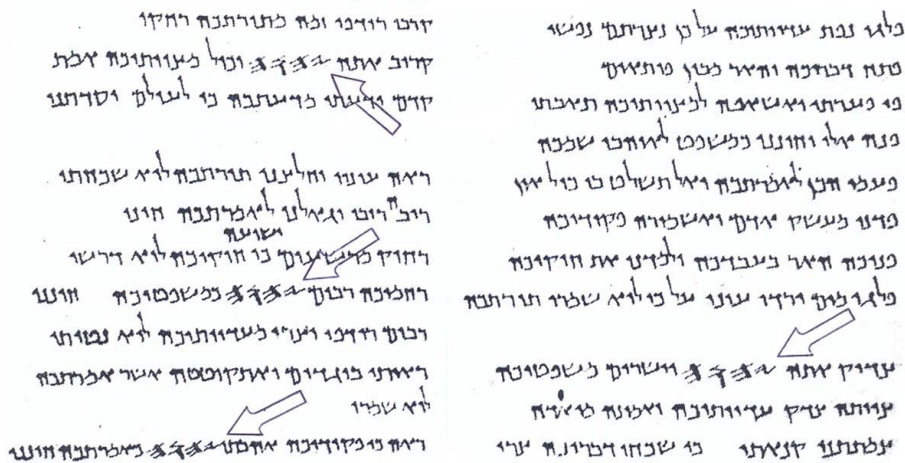 פלגי נפת עדוותיכה על כן נצרתם נפשי
פתח דבריכה והאר מבין פותאים
פי פערתי ואשאפה למצוותיכה תאבתי
פנה אלי וחונני כמשפט לאוהבי שמכה
פעמי הכן לאמרתכה ואל תשלט בי כול און
פדני מעשק אדם ואשמורה פקודיכה
פניכה האר בעבדכה ולמדני את חוקיכה
פלגי מים ירדו עיני על כי לוא שמרו תורתכה
צדיק אתה 𐤉𐤄𐤅𐤄 וישרים משפטיכה
צויתה צדק עדוותיכה ואמונה
צמתתני קנאתי כי שכחו דבריכה צרי
קרבו רודפי זמה מתורתכה רחקו
קרוב אתה 𐤉𐤄𐤅𐤄 וכול מצוותיכה אמת
קדם ידעתי מדעתכה כי לעולם יסדתני
ראה עוניי וחלצני תורתכה לוא שכחתי
ריבה ריבי וגאלני לאמרתכה חייני
ישועה
רחוק מרשעים כי חוקיכה לוא דרשו
רחמיכה רבים 𐤉𐤄𐤅𐤄 כמשפטיכה חונני
רבים רודפי וצרי מעדוותיכה לוא נטיתי
ראיתי בוגדים ואתקוטטה אשר אמרתכה
לוא שמרו
ראה כי פקודיכה אהבתי 𐤉𐤄𐤅𐤄 כאמרתכה חונני